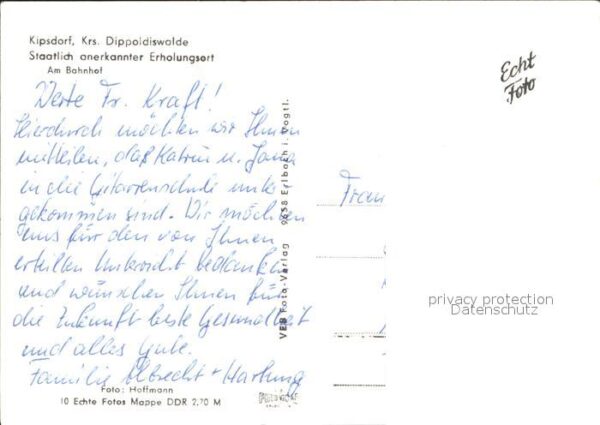 Kipsdorf, Krs. Dippoldiswalde
Staatlich anerkannter Erholungsort
Am Bahnhof
Werte Fr. Kraft!
Hierdurch möchten wir Ihnen
mitteilen, daß Katrin u. Jana
in die Gitarrenschule unter
gekommen sind. Wir möchten
uns für den von Ihnen
erteilten Unterricht bedanken
und wünschen Ihnen für
die Zukunft beste Gesundheit
und alles Gute.
Familie Albrecht + Hartung
Foto: Hoffmann
10 Echte Fotos Mappe DDR 2,70 M
VEB Foto-Verlag 9658 Erlbach i. Vogtl.
Echt
Foto
Frau
privacy protection
Datenschutz